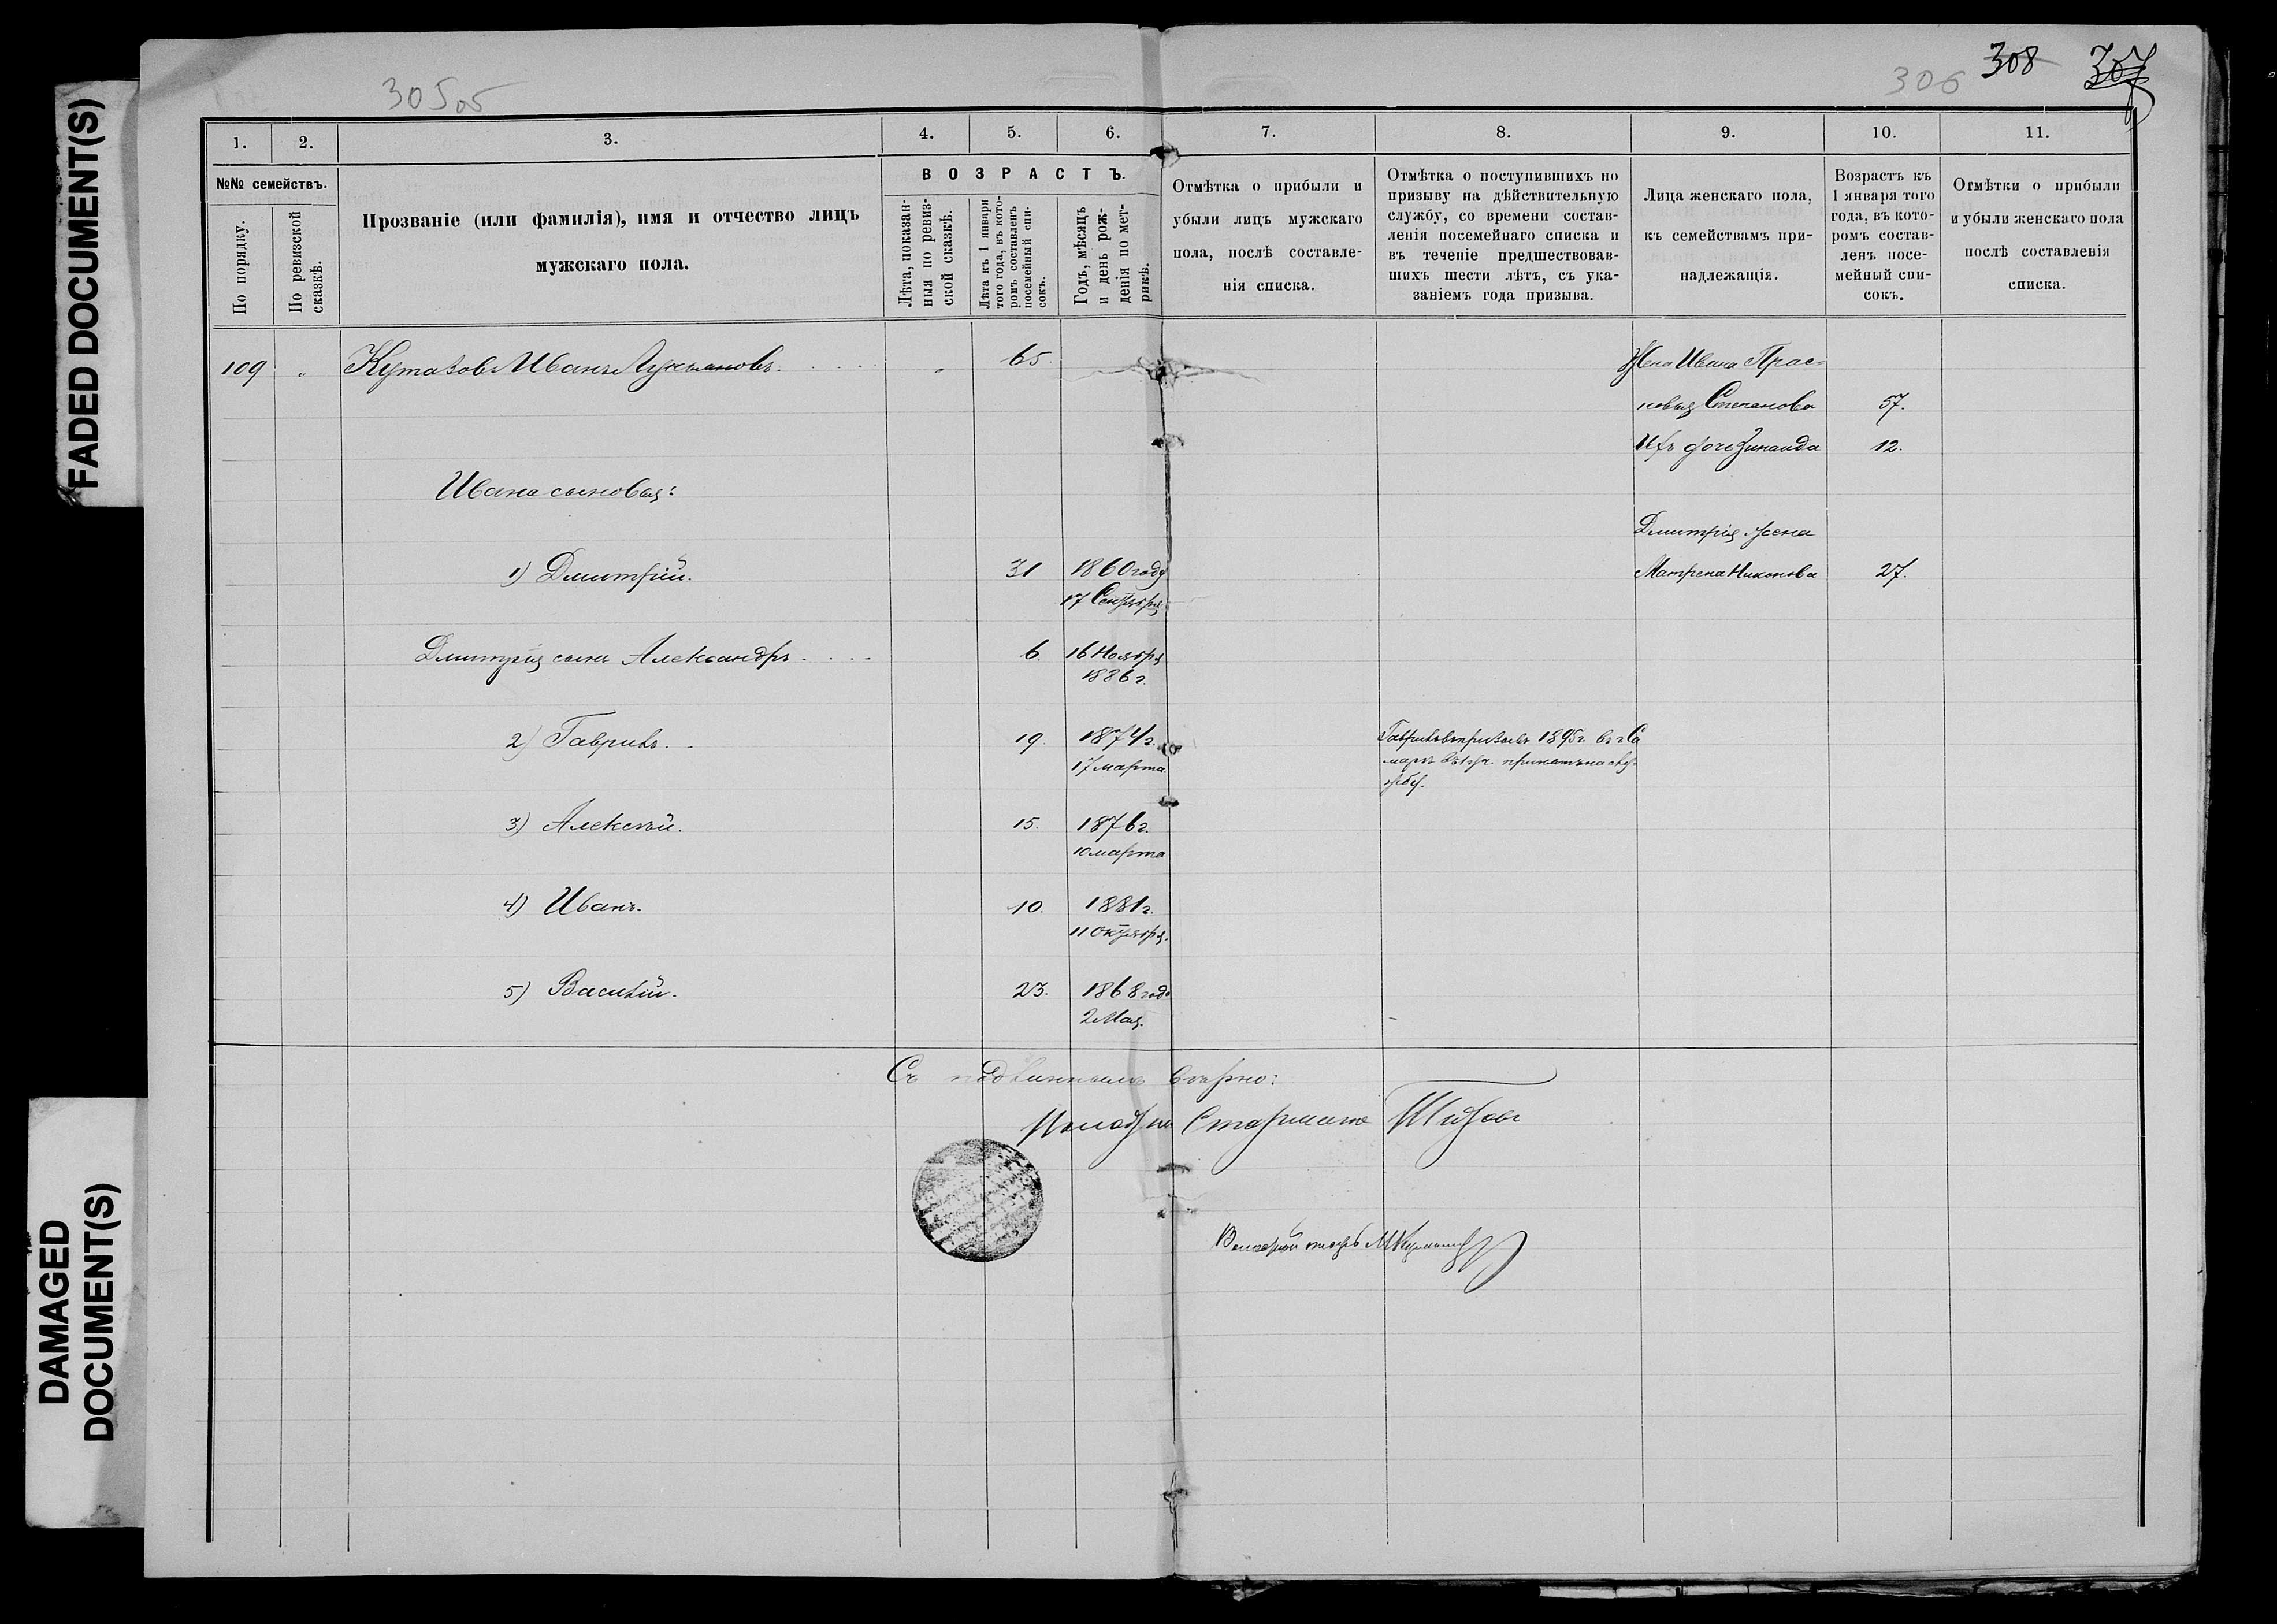 FADED DOCUMENT(S)
DAMAGED
DOCUMENT(S)
305 об
306 308 307
1. 2. 3. 4. 5. 6. 7. 8. 9. 10. 11.
№№ семействъ.
По порядку.
По ревизской
сказкѣ.
Прозваніе (или фамилія), имя и отчество лицъ
мужскаго пола.
ВОЗРАСТЪ.
Лѣта, показан-
ныя по ревиз-
ской сказкѣ.
Лѣта къ 1 января
того года, въ кото-
ромъ составленъ
посемейный спи-
сокъ.
Годъ, мѣсяцъ
и день рож-
денія по мет-
рикѣ.
Отмѣтка о прибыли и
убыли лицъ мужскаго
пола, послѣ составле-
нія списка.
Отмѣтка о поступившихъ по
призыву на дѣйствительную
службу, со времени состав-
ленія посемейнаго списка и
въ теченіе предшествовав-
шихъ шести лѣтъ, съ ука-
заніемъ года призыва.
Лица женскаго пола,
къ семействамъ при-
надлежащія.
Возрастъ къ
1 января того
года, въ кото-
ромъ состав-
ленъ посе-
мейный спи-
сокъ.
Отмѣтки о прибыли
и убыли женскаго пола
послѣ составленія
списка.
109 " Кутазовъ Иванъ Лукьяновъ. " 65. Жена Ивана Прас-
ковья Степанова 57.
Ихъ дочь Зинаида 12.
Ивана сыновья:
Дмитрія жена
1) Дмитрій. 31 1860 года Матрена Никонова 27.
17 Сентября
Дмитрія сынъ Александръ 6. 16 Ноября
1886 г.
2) Гаврилъ. 19. 1874 г. Гаврилъ въ призывъ 1895 г. въ г. Са
17 марта марѣ въ 1 уч. принятъ на слу-
жбу.
3) Алексѣй. 15. 1876 г.
10 марта
4) Иванъ. 10. 1881 г.
11 Октября.
5) Василій. 23. 1868 года
2 Мая.
Съ подлиннымъ вѣрно:
Старшина
Волостной писарь